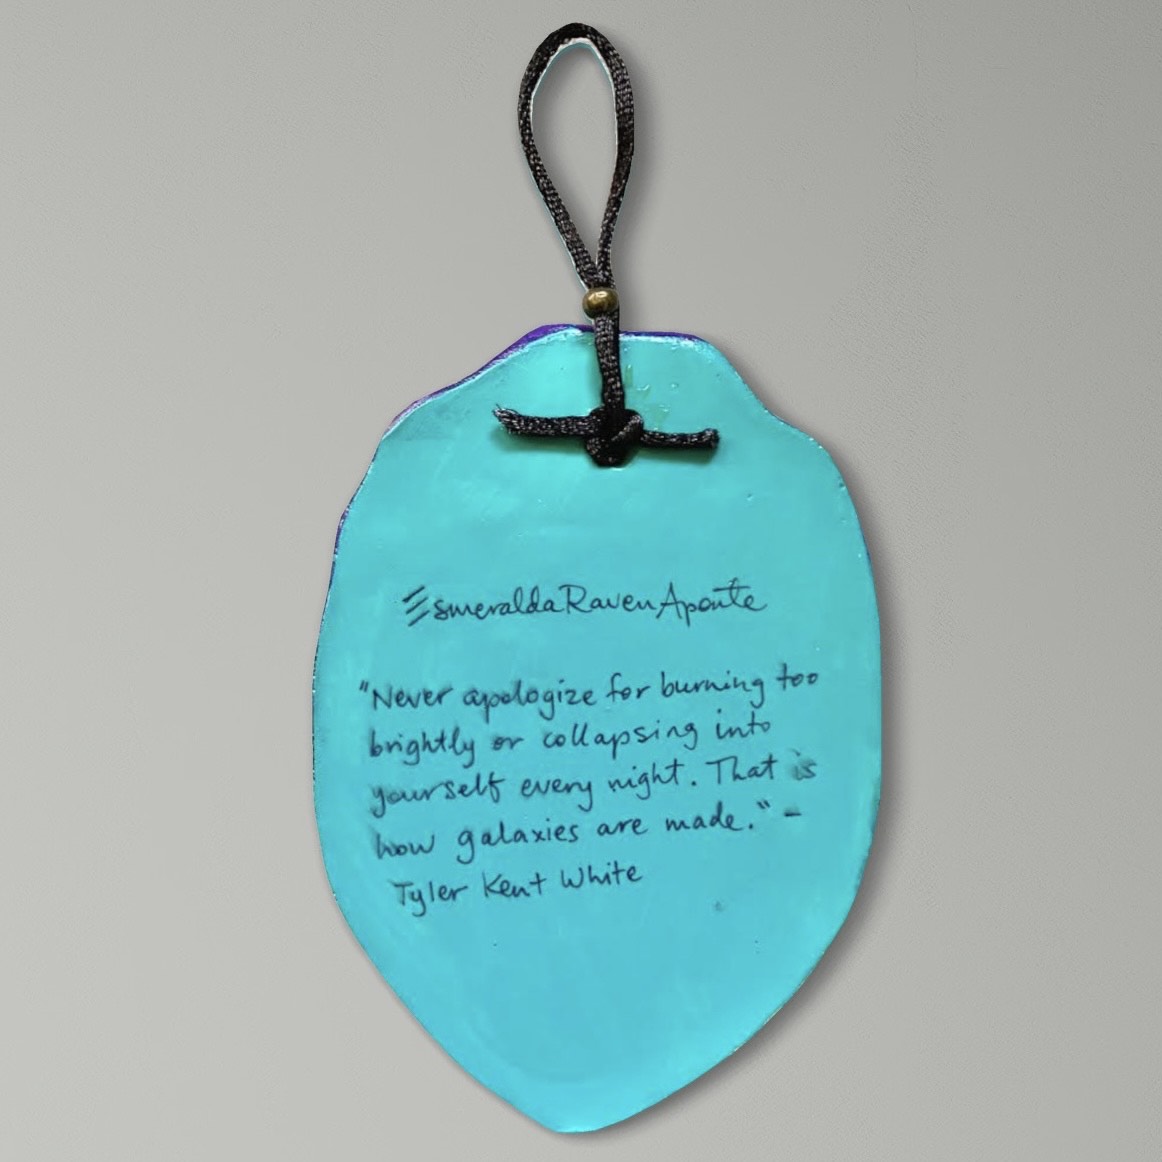 Esmeralda Raven Aponte
"Never apologize for burning too
brightly or collapsing into
yourself every night. That is
how galaxies are made." -
Tyler Kent White